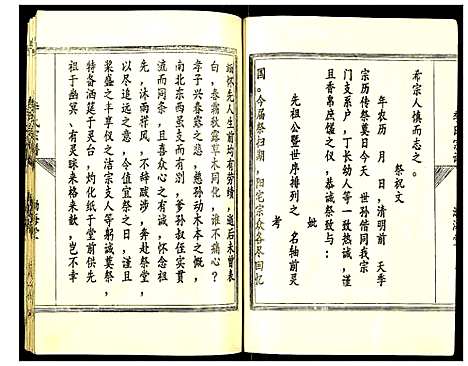 希宗人慎而志之。
祭祝文
年农历 月 日,清明前 天季
宗历传祭奠日今天 世孙偕同我宗
门支系户,丁长幼人等一致热诚,谨
且香帛庶馐之仪,恭诚祭致与:
考
先祖公暨世序排列之 名轴前灵
妣
国。今届祭扫期,阳宅宗众各尽回忆
缅怀先人生前均有劳绩,逝后未曾表
白,春霜秋露草木同化,谁不痛心?
孝子兴春露之悲,慈孙动木本之慨,
南北东西虽支而有别,爹孙叔侄实贯
流而同条,且喜众心之有诚,怀念祖
先,沐雨栉风,不辞跋涉,奔赴祭堂,
以尽追远之意,今值宜祭之日,谨且
粢盛之丰享仪之洁宗支人等躬诚奠祭,
特备酒筵于灵台,灼化纸于堂前供先
祖于幽冥、有灵眎来格来歆,岂不幸